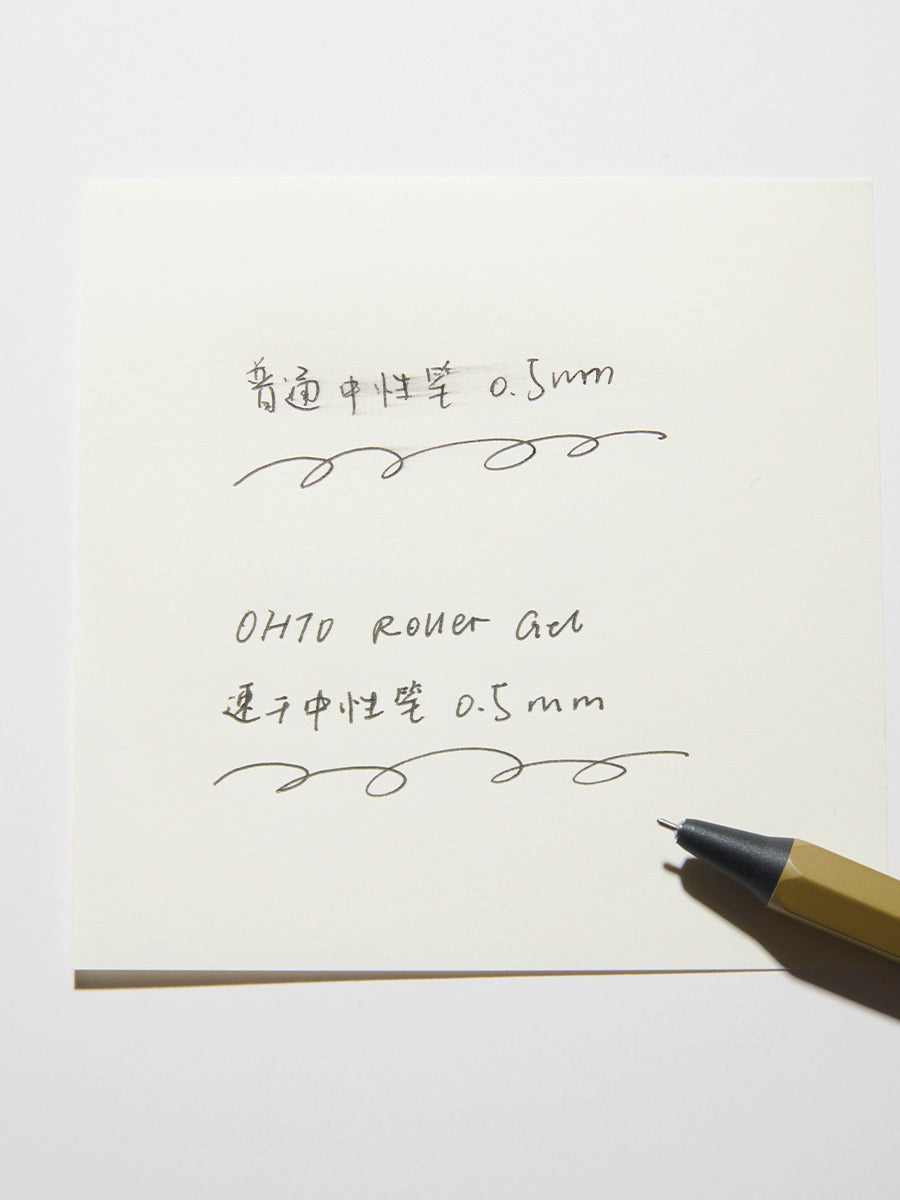 普通中性笔 0.5mm
OHTO Roller Gel
速干中性笔 0.5mm